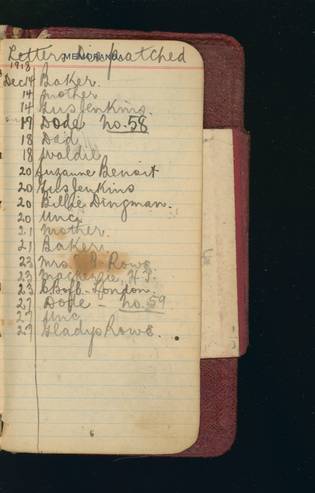 Letters Dispatched
MEMORANDA
1918
Dec 14 Baker.
14 Mother
14 Gus Jenkins.
17 Dode no. 58
18 Dad
18 Waldie
20 Suzanne Benoit
20 Gus Jenkins
20 Billie Dingman.
20 Unc.
21 Mother.
21 Baker.
23 Mrs. Rowe
23 Mackenzie, H.J.
23 London.
27 Dode - no. 59
27 Unc.
27 Gladys Rowe.
6